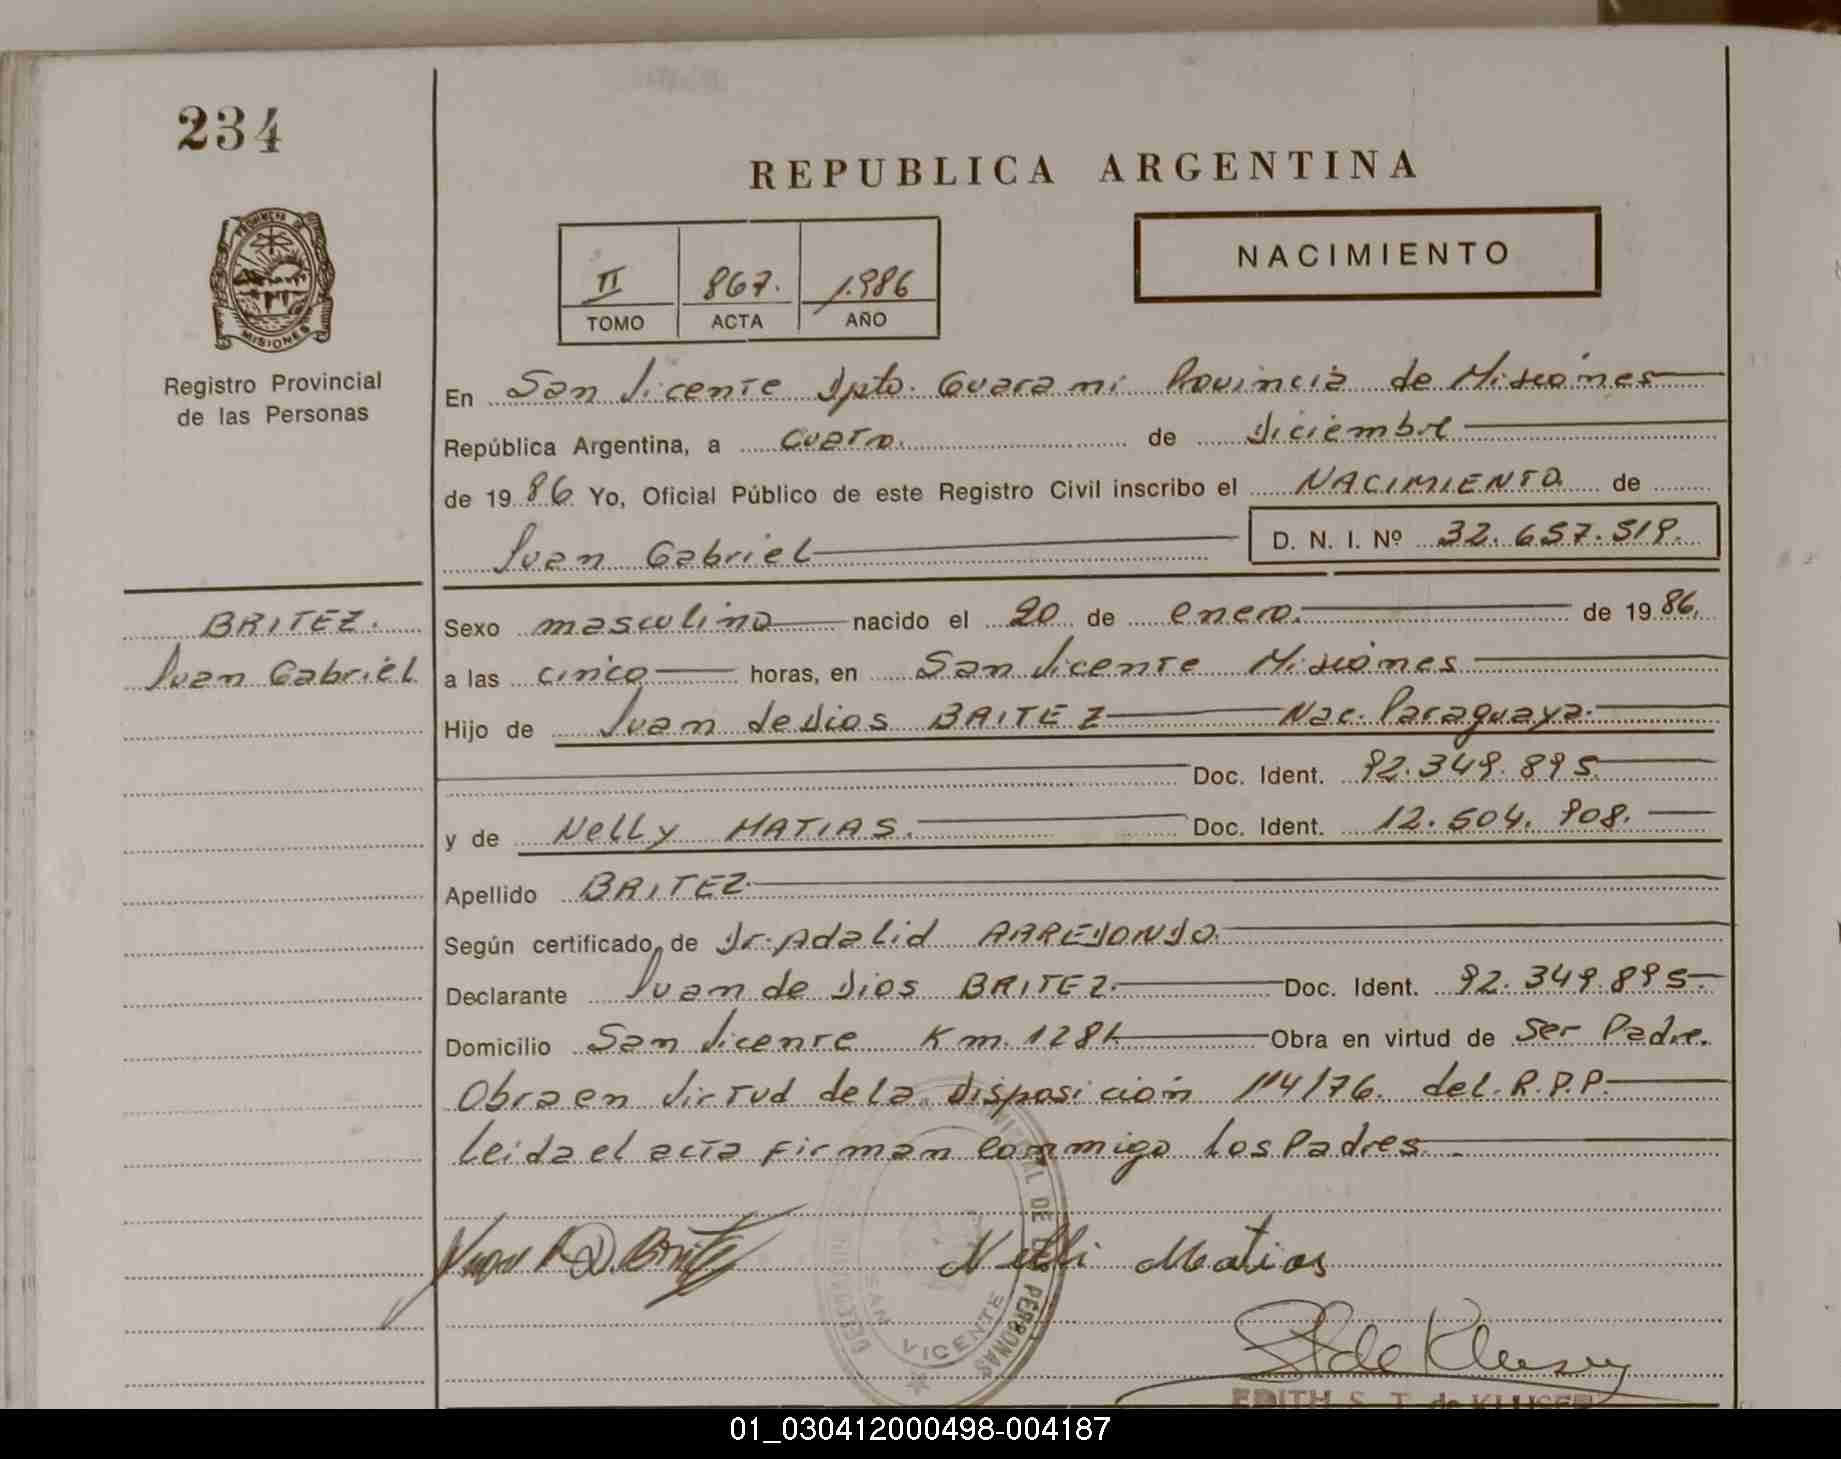 234
REPUBLICA ARGENTINA
PROVINCIA DE
MISIONES
Registro Provincial
de las Personas
II 867. 1.986
TOMO ACTA AÑO
NACIMIENTO
En San Vicente Dpto. Guaraní Provincia de Misiones
República Argentina, a cuatro. de Diciembre
de 19 86 Yo, Oficial Público de este Registro Civil inscribo el NACIMIENTO de
Juan Gabriel D. N. I. Nº 32.657.519.
BRITEZ.
Juan Gabriel
Sexo masculino nacido el 20 de enero. de 19 86.
a las cinco horas, en San Vicente Misiones
Hijo de Juan de Dios BRITEZ Nac. Paraguaya.
Doc. Ident. 92.349.895
y de Nelly MATIAS. Doc. Ident. 12.604.908.
Apellido BRITEZ
Según certificado de Dr. Adalid ARREDONDO.
Declarante Juan de Dios BRITEZ. Doc. Ident. 92.349.895
Domicilio San Vicente Km. 1281 Obra en virtud de Ser Padre.
Obra en Virtud de la Disposición 114/76. del R.P.P.
Leida el acta firman conmigo los Padres
Juan D. Britez
Nelli Matias
DE LAS PERSONAS
SAN VICENTE
S T de Kluser
EDITH S. T. de KLUSER
01_030412000498-004187